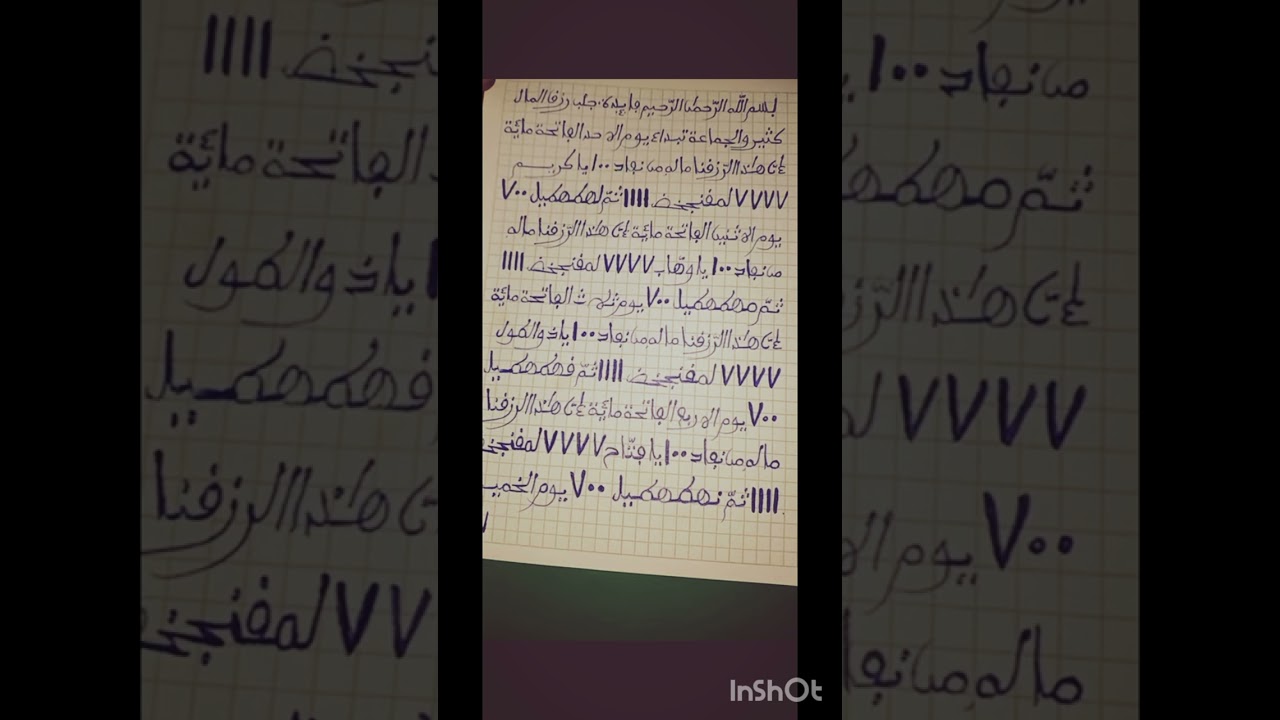 بسم الله الرّحمٰن الرّحيم فايدة. جلب رزق المال
كثير والجماعة تبداء يوم الاحد الفاتحة مائة
هٰذا الرّزقنا ماله من نفاد ١٠٠ يا كريم
٧٧٧٧ لمقفنجخض ١١١١ ثمّ لهكهكهيل ٧٠٠
يوم الاثنين الفاتحة مائة هٰذا الرّزقنا ماله
من نفاد ١٠٠ يا وهّاب ٧٧٧٧ لمقفنجخض ١١١١
ثمّ مهكهكهيل ٧٠٠ يوم ثلاث الفاتحة مائة
هٰذا الرّزقنا ماله من نفاد ١٠٠ ياذوالطول
٧٧٧٧ لمقفنجخض ١١١١ ثمّ فهكهكهيل
٧٠٠ يوم الاربع الفاتحة مائة هٰذا الرزقنا
ماله من نفاد ١٠٠ يا فتّاح ٧٧٧٧
١١١١ ثمّ نهكهكهيل ٧٠٠ يوم
InShOt